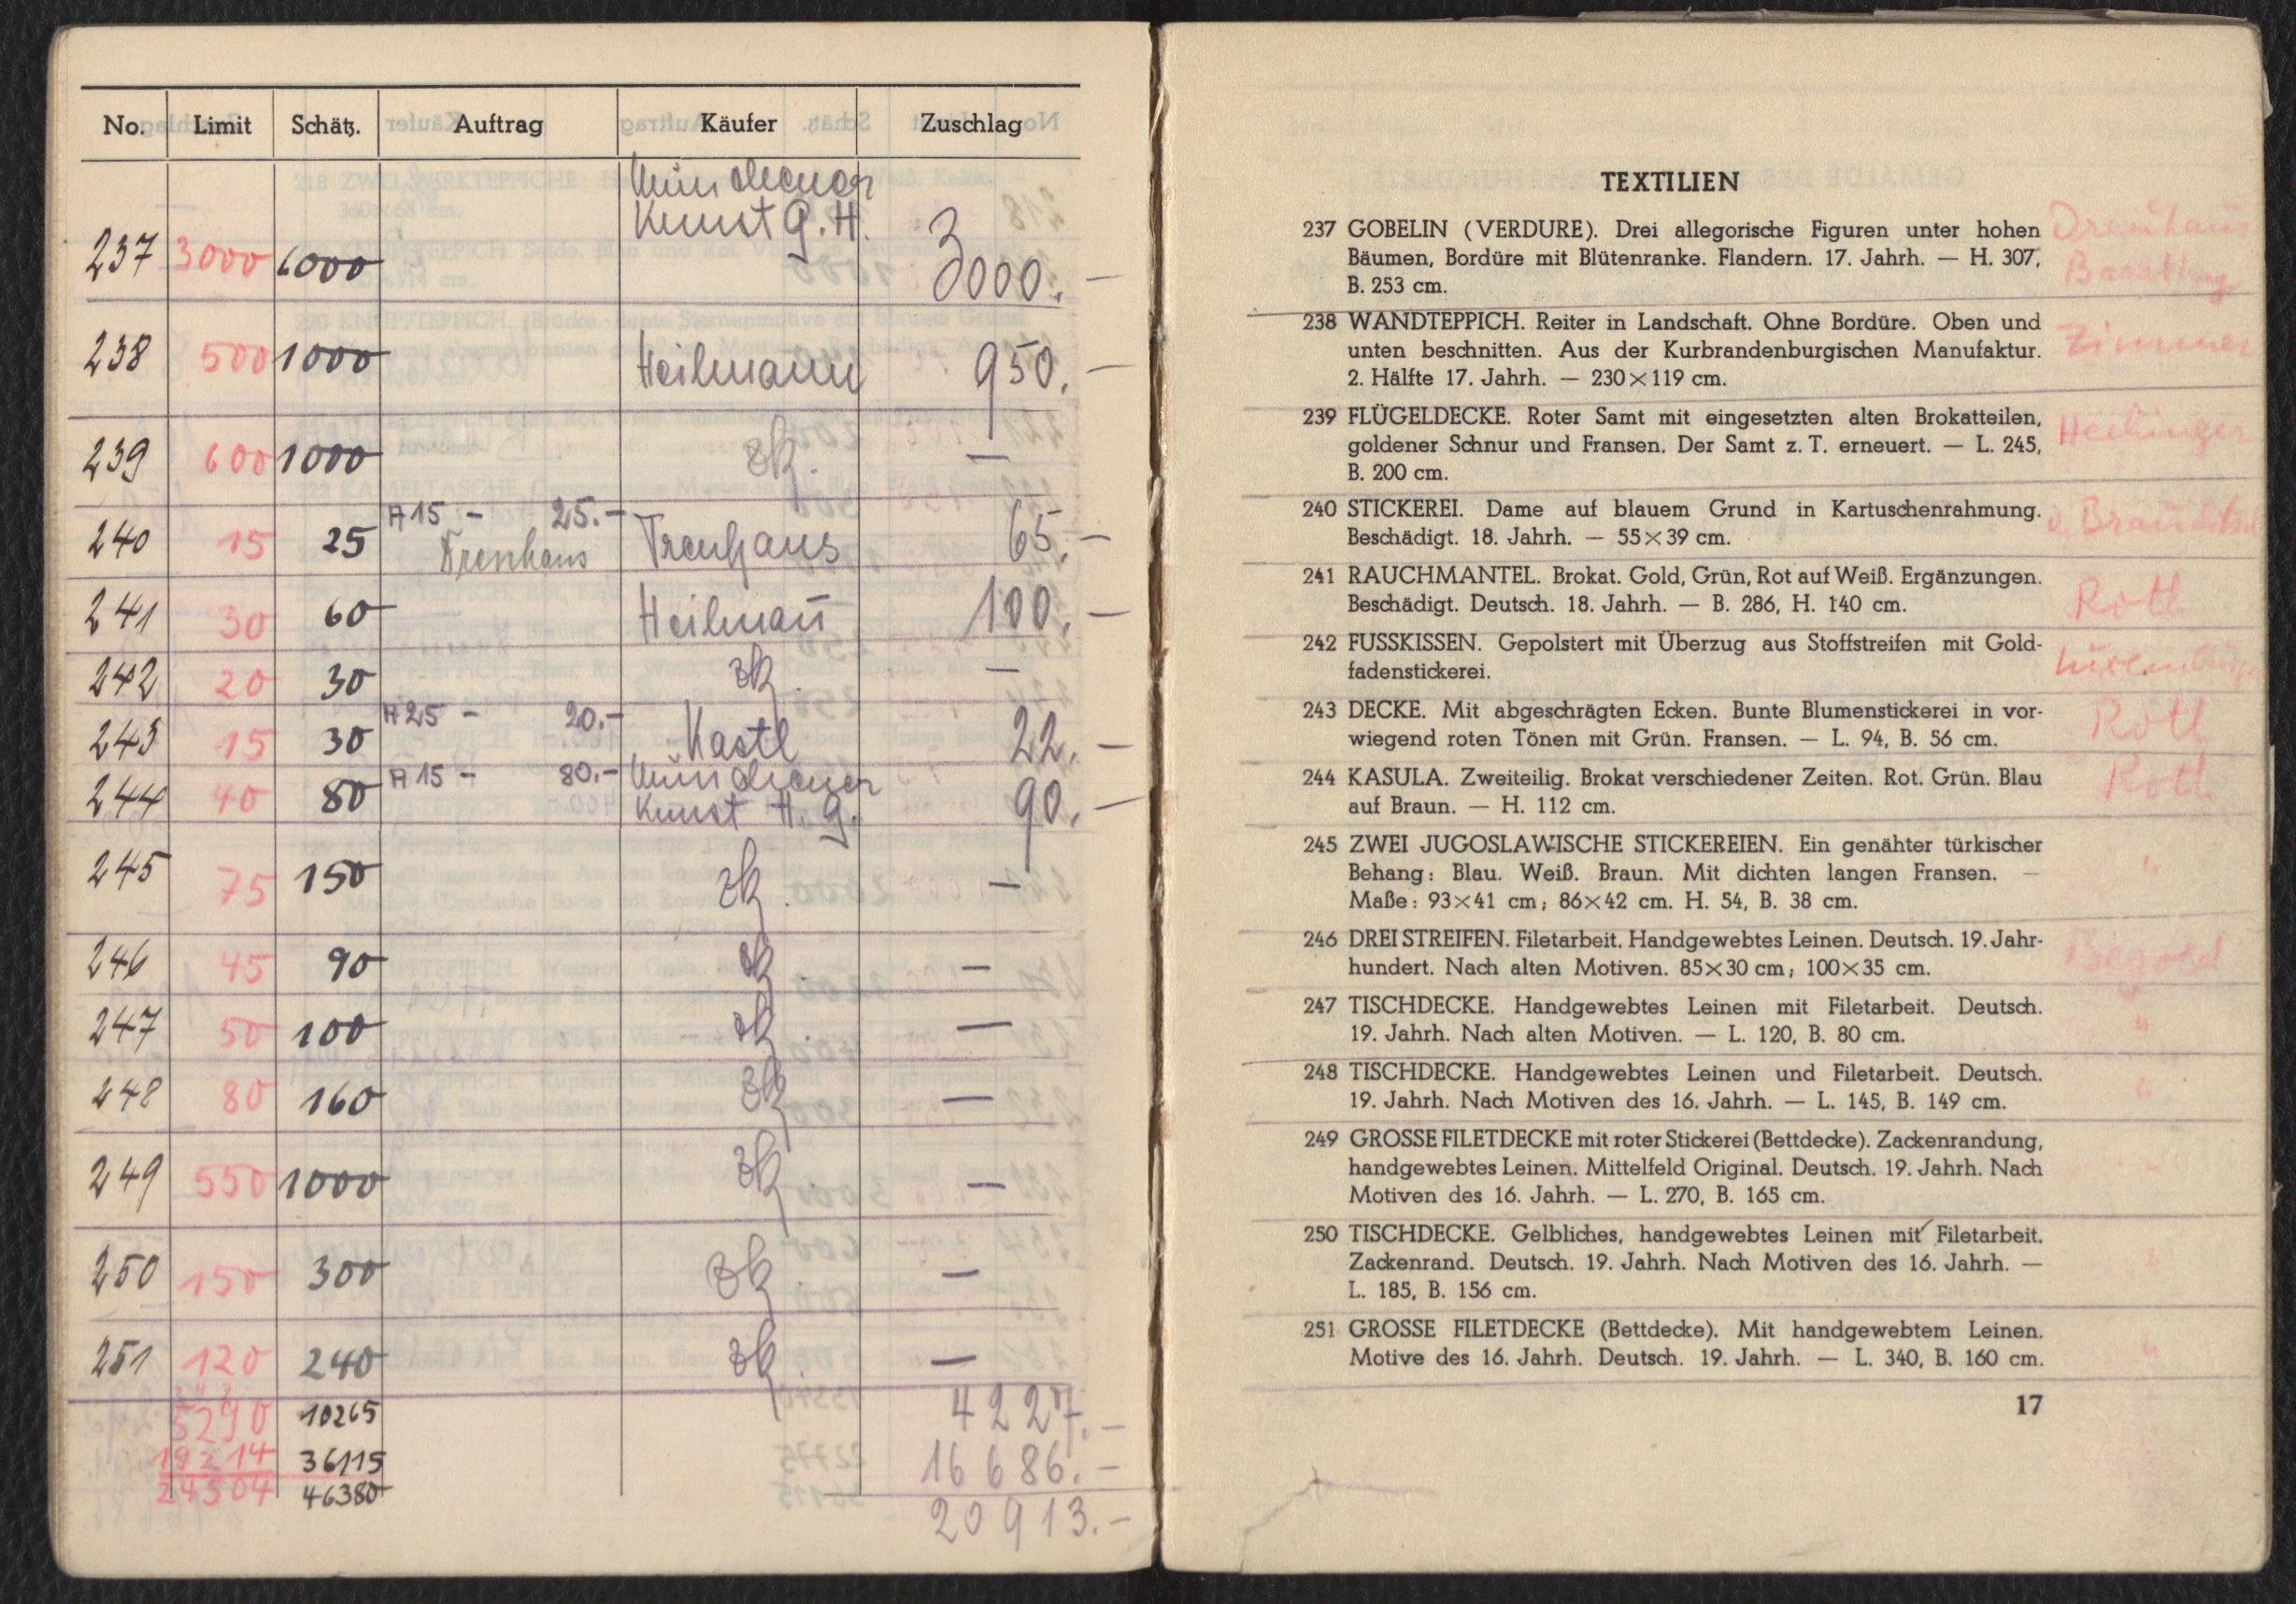 No. Limit Schätz. Auftrag Käufer Zuschlag
Münchener
Kunst G. H.
237 3000 6000 3000.-
238 500 1000 Heilmann 950.-
239 600 1000 zk. —
A 15 - 25.-
240 15 25 Treuhaus Treuhaus 65.-
241 30 60 Heilmañ 100.-
242 20 30 zk. —
A 25 - 20.-
243 15 30 Kastl 22.-
A 15 - 80.- Münchener
244 40 80 Kunst H. G. 90.-
245 75 150 zk. —
246 45 90 zk. —
247 50 100 zk. —
248 80 160 zk. —
249 550 1000 zk. —
250 150 300 zk. —
251 120 240 zk. —
5290 10265 4227.-
19214 36115 16686.-
24504 46380 20913.-
TEXTILIEN
237 GOBELIN (VERDURE). Drei allegorische Figuren unter hohen
Bäumen, Bordüre mit Blütenranke. Flandern. 17. Jahrh. — H. 307,
B. 253 cm.
238 WANDTEPPICH. Reiter in Landschaft. Ohne Bordüre. Oben und Zimmer
unten beschnitten. Aus der Kurbrandenburgischen Manufaktur.
2. Hälfte 17. Jahrh. — 230×119 cm.
239 FLÜGELDECKE. Roter Samt mit eingesetzten alten Brokatteilen,
goldener Schnur und Fransen. Der Samt z. T. erneuert. — L. 245,
B. 200 cm.
240 STICKEREI. Dame auf blauem Grund in Kartuschenrahmung.
Beschädigt. 18. Jahrh. — 55×39 cm.
241 RAUCHMANTEL. Brokat. Gold, Grün, Rot auf Weiß. Ergänzungen. Roth
Beschädigt. Deutsch. 18. Jahrh. — B. 286, H. 140 cm.
242 FUSSKISSEN. Gepolstert mit Überzug aus Stoffstreifen mit Gold-
fadenstickerei.
243 DECKE. Mit abgeschrägten Ecken. Bunte Blumenstickerei in vor- Roth
wiegend roten Tönen mit Grün. Fransen. — L. 94, B. 56 cm.
244 KASULA. Zweiteilig. Brokat verschiedener Zeiten. Rot. Grün. Blau Roth
auf Braun. — H. 112 cm.
245 ZWEI JUGOSLAWISCHE STICKEREIEN. Ein genähter türkischer
Behang: Blau. Weiß. Braun. Mit dichten langen Fransen. — "
Maße: 93×41 cm; 86×42 cm. H. 54, B. 38 cm.
246 DREI STREIFEN. Filetarbeit. Handgewebtes Leinen. Deutsch. 19. Jahr-
hundert. Nach alten Motiven. 85×30 cm; 100×35 cm.
247 TISCHDECKE. Handgewebtes Leinen mit Filetarbeit. Deutsch. "
19. Jahrh. Nach alten Motiven. — L. 120, B. 80 cm.
248 TISCHDECKE. Handgewebtes Leinen und Filetarbeit. Deutsch. "
19. Jahrh. Nach Motiven des 16. Jahrh. — L. 145, B. 149 cm.
249 GROSSE FILETDECKE mit roter Stickerei (Bettdecke). Zackenrandung,
handgewebtes Leinen. Mittelfeld Original. Deutsch. 19. Jahrh. Nach "
Motiven des 16. Jahrh. — L. 270, B. 165 cm.
250 TISCHDECKE. Gelbliches, handgewebtes Leinen mit Filetarbeit.
Zackenrand. Deutsch. 19. Jahrh. Nach Motiven des 16. Jahrh. — "
L. 185, B. 156 cm.
251 GROSSE FILETDECKE (Bettdecke). Mit handgewebtem Leinen.
Motive des 16. Jahrh. Deutsch. 19. Jahrh. — L. 340, B. 160 cm. "
17